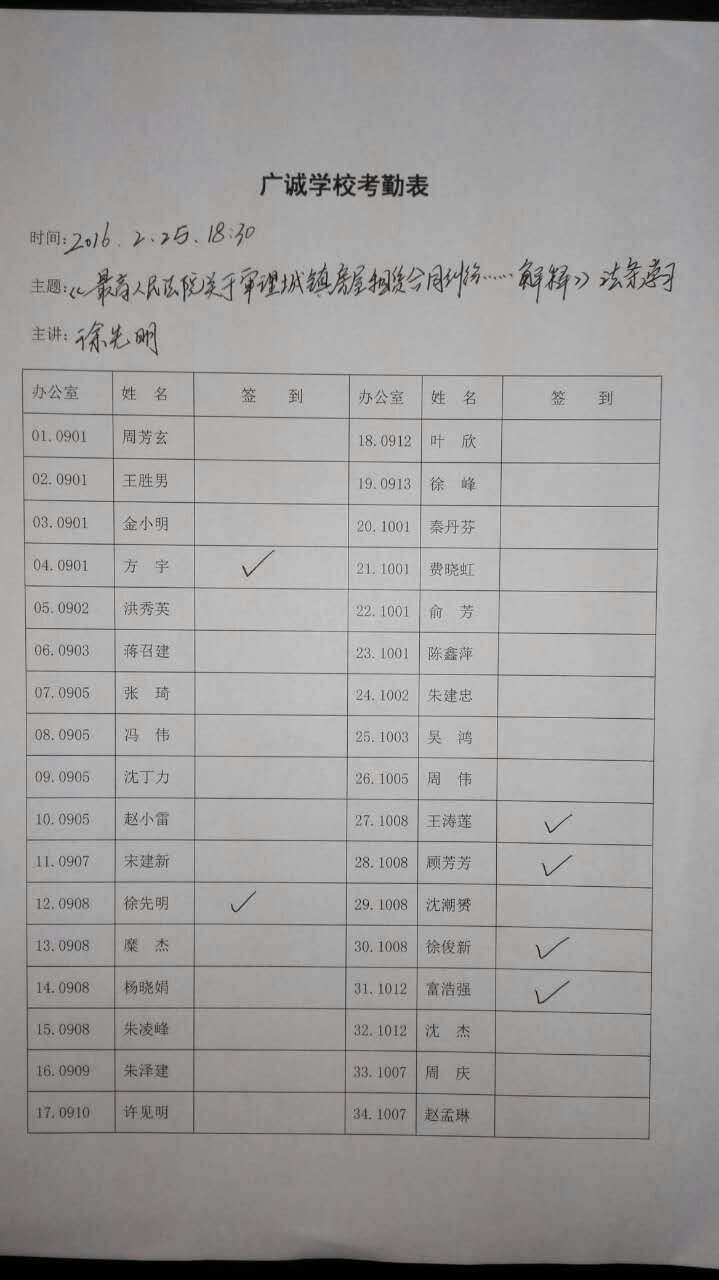 广诚学校考勤表
时间:2016.2.25.18:30
主题:《最高人民法院关于审理城镇房屋租赁合同纠纷……解释》法条学习
主讲:徐先明
办公室 姓 名 签 到 办公室 姓 名 签 到
01.0901 周芳玄 18.0912 叶 欣
02.0901 王胜男 19.0913 徐 峰
03.0901 金小明 20.1001 秦丹芬
04.0901 方 宇 ✓ 21.1001 费晓虹
05.0902 洪秀英 22.1001 俞 芳
06.0903 蒋召建 23.1001 陈鑫萍
07.0905 张 琦 24.1002 朱建忠
08.0905 冯 伟 25.1003 吴 鸿
09.0905 沈丁力 26.1005 周 伟
10.0905 赵小雷 27.1008 王涛莲 ✓
11.0907 宋建新 28.1008 顾芳芳 ✓
12.0908 徐先明 ✓ 29.1008 沈潮赟
13.0908 糜 杰 30.1008 徐俊新 ✓
14.0908 杨晓娟 31.1012 富浩强 ✓
15.0908 朱凌峰 32.1012 沈 杰
16.0909 朱泽建 33.1007 周 庆
17.0910 许见明 34.1007 赵孟琳